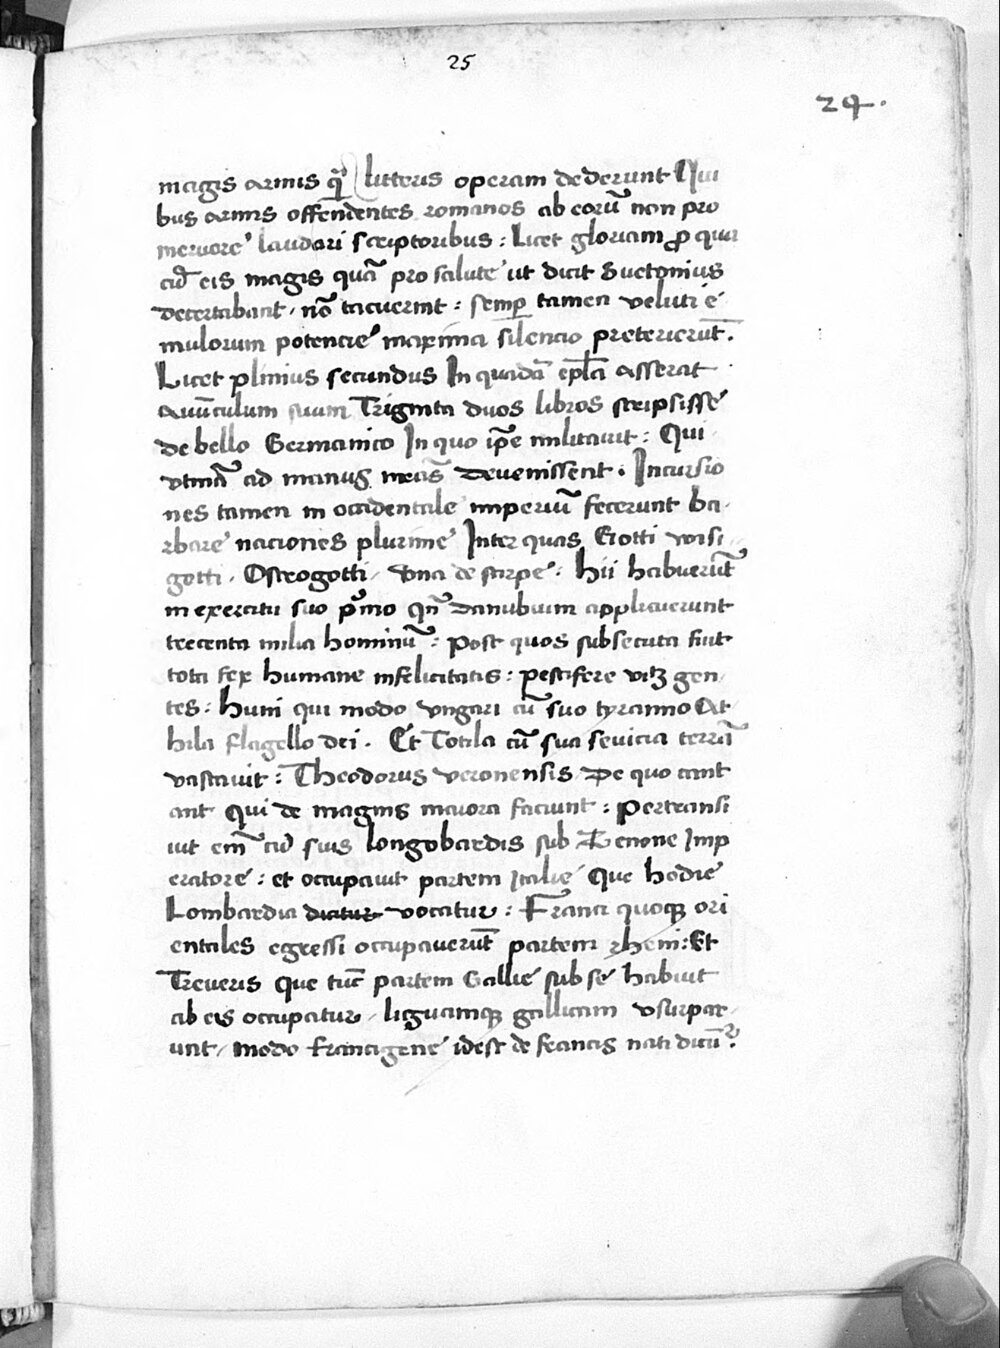 25
24.
magis armis q̃ litteris operam dederunt Qui
bus armis offendentes romanos ab eorū non pro
meruere laudari scriptoribus : Licet gloriam ꝓ qua
cū eis magis quā pro salute ut dicit Suetonius
decertabant , nō tacuerint : semꝑ tamen veluti e
mulorum potencie maxima silencio preterierūt .
Licet plinius secundus In quadā ep̄la asserat
Avūculum suum Triginta duos libros scripsisse
de bello Germanico In quo ip̄e militavit : Qui
utinā ad manus meas devenissent . Incursio
nes tamen in occidentale imperiū fecerunt ba-
rbare naciones plurime Inter quas Gotti visi
gotti , Ostrogotti , una de stirpe : hii habuerūt
in exercitu suo pͥmo qn̄ danubium applicuerunt
trecenta milia hominū : Post quos subsecuta fuit
tota fex humane infelicitatis : pestifere utiqꝫ gen
tes : huni qui modo ungari cū suo tyranno At
hila flagello dei . Et Totila cū sua sevicia terrā
vastavit : Theodorus veronensis , De quo cant
ant Qui de magnis maiora faciunt : pertransi
iit em̄ cū suis longobardis sub Zenone Imp
eratore : et occupavit partem Italie Que hodie
Lombardia dicitur vocatur : Franci quoqꝫ ori
entales egressi occupaverūt partem rheni : Et
Treveris que tūc partem Gallie sub se habuit
ab eis occupatur , liguamqꝫ gallicam usurpar-
unt , modo francigene idest de francis nati dicūr .